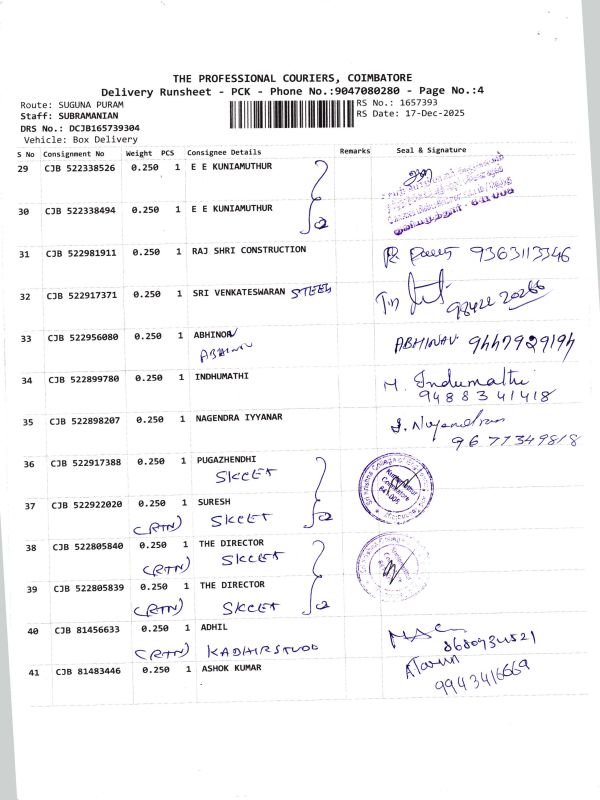 THE PROFESSIONAL COURIERS, COIMBATORE
Delivery Runsheet - PCK - Phone No.:9047080280 - Page No.:4
Route: SUGUNA PURAM
RS No.: 1657393
Staff: SUBRAMANIAN
RS Date: 17-Dec-2025
DRS No.: DCJB165739304
Vehicle: Box Delivery
S No Consignment No Weight PCS Consignee Details Remarks Seal & Signature
29 CJB 522338526 0.250 1 E E KUNIAMUTHUR
30 CJB 522338494 0.250 1 E E KUNIAMUTHUR
31 CJB 522981911 0.250 1 RAJ SHRI CONSTRUCTION 9363113346
32 CJB 522917371 0.250 1 SRI VENKATESWARAN STEEL 98422 20266
33 CJB 522956080 0.250 1 ABHINOV ABHINAV 9447929194
ABHINAV
34 CJB 522899780 0.250 1 INDHUMATHI M. Indumathi
9488341418
35 CJB 522898207 0.250 1 NAGENDRA IYYANAR J. Nagendran
9677349818
36 CJB 522917388 0.250 1 PUGAZHENDHI
SKCET
37 CJB 522922020 0.250 1 SURESH
(RTN) SKCET
38 CJB 522805840 0.250 1 THE DIRECTOR
(RTN) SKCET
39 CJB 522805839 0.250 1 THE DIRECTOR
(RTN) SKCET
40 CJB 81456633 0.250 1 ADHIL
(RTN) KADHIRSTUDD 8680934521
41 CJB 81483446 0.250 1 ASHOK KUMAR ATarun
9943416669